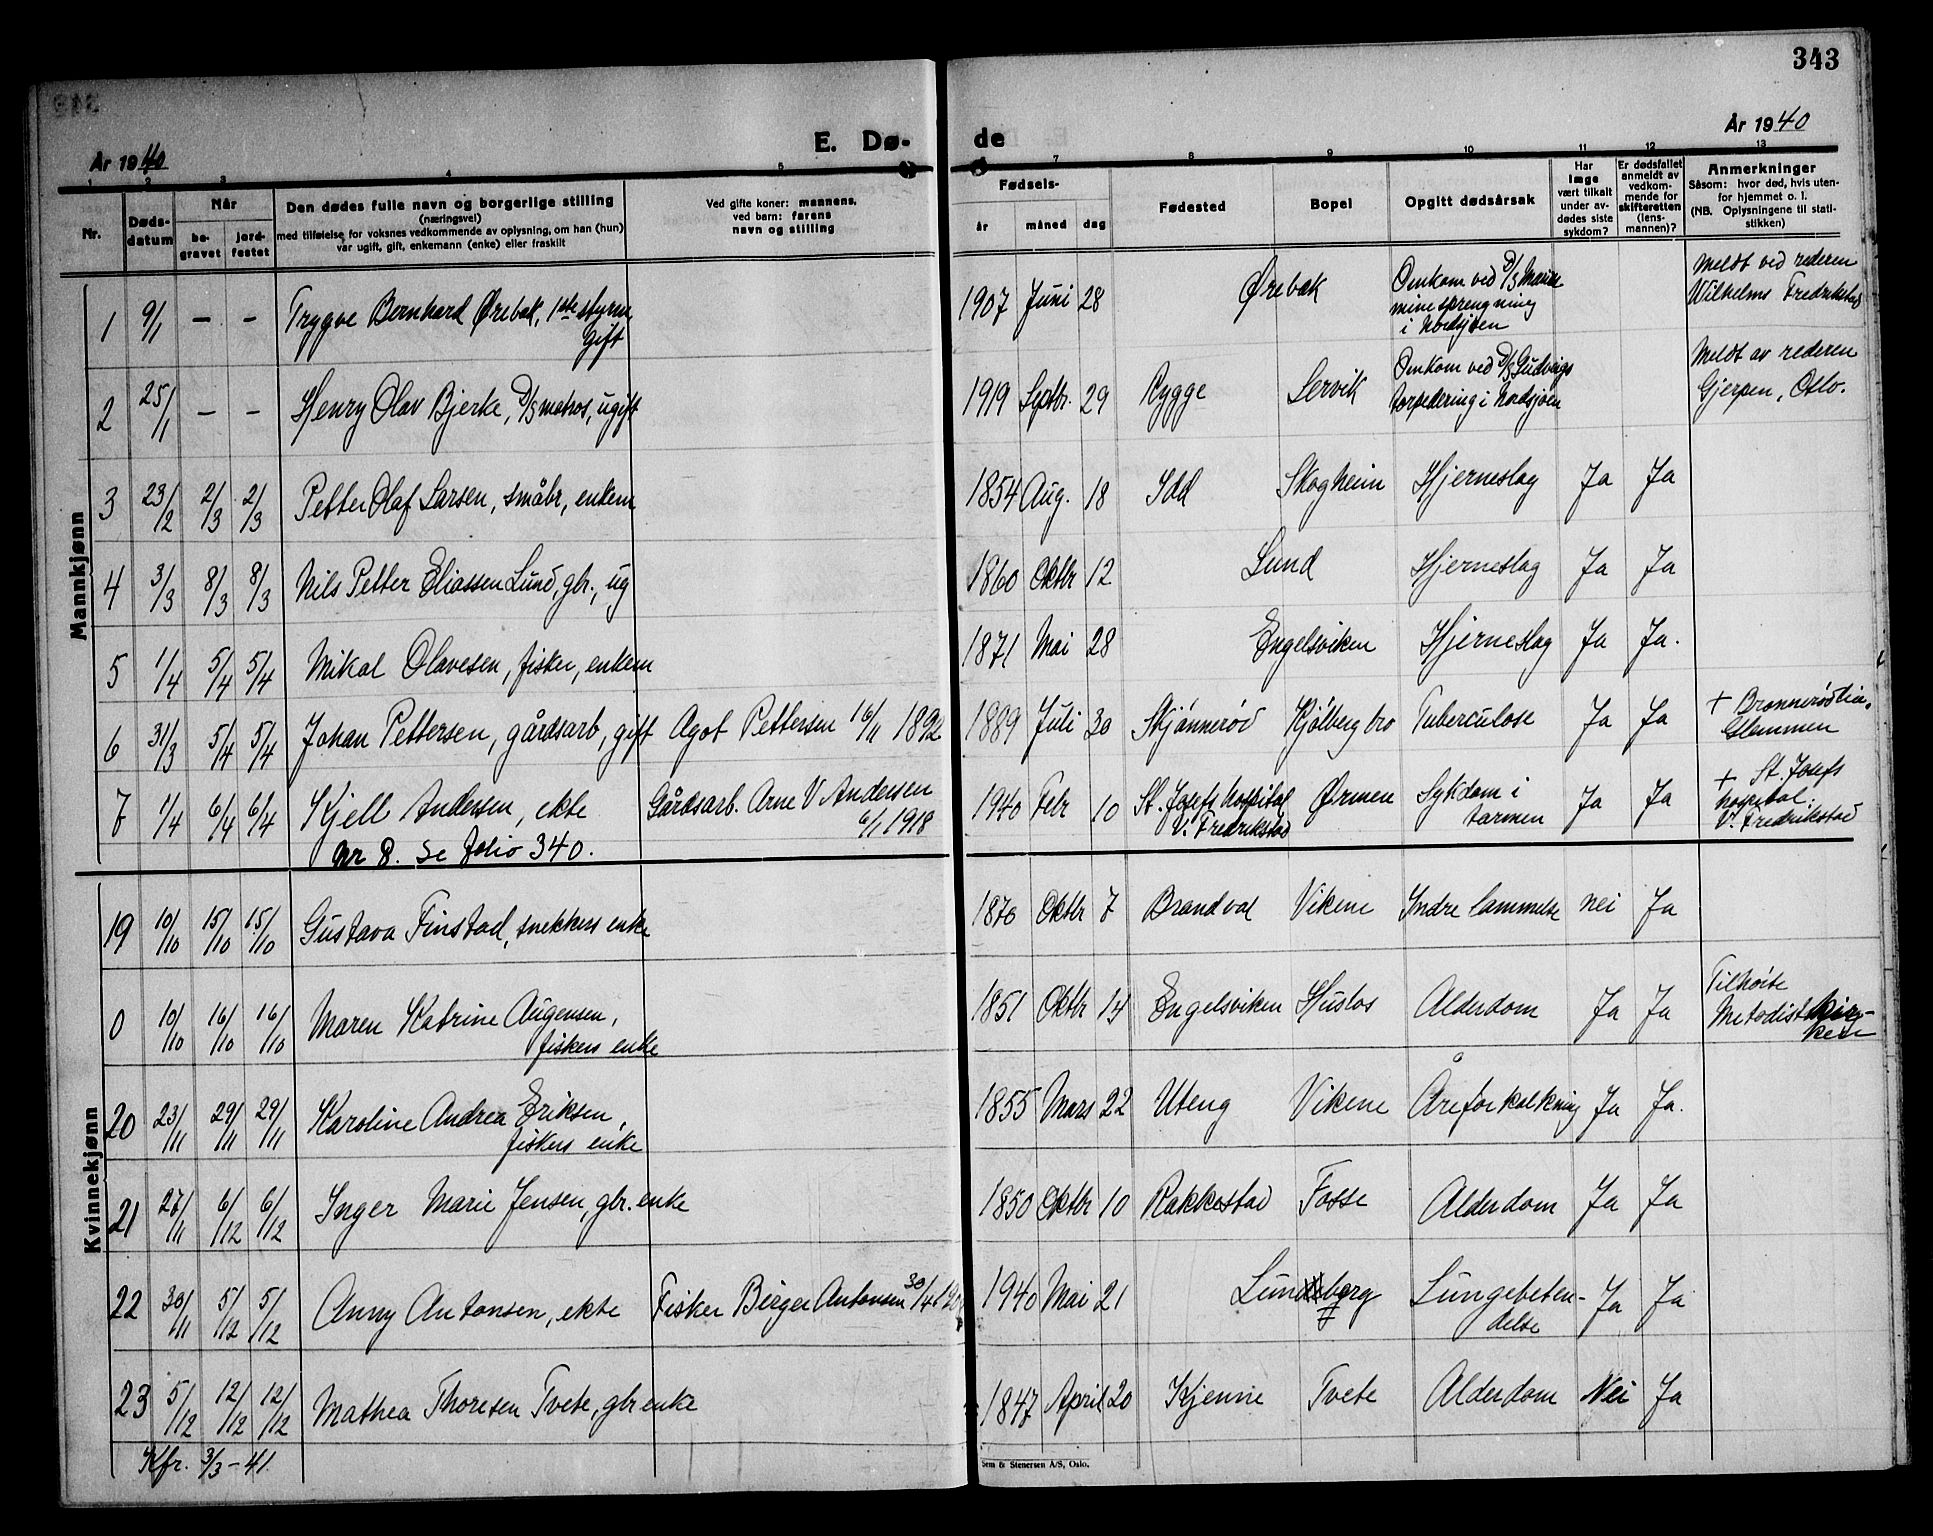 343
År 1940
E. Dø-
de
År 1940
1 2 3 4 5 7 8 9 10 11 12 13
Nr.
Døds-
datum
Når
be-
gravet
jord-
festet
Den dødes fulle navn og borgerlige stilling
(næringsvei)
med tilføielse for voksnes vedkommende av oplysning, om han (hun)
var ugift, gift, enkemann (enke) eller fraskilt
Ved gifte koner: mannens,
ved barn: farens
navn og stilling
Fødsels-
år måned dag
Fødested
Bopel
Opgitt dødsårsak
Har
læge
vært tilkalt
under av-
dødes siste
sykdom?
Er dødsfallet
anmeldt av
vedkom-
mende for
skifteretten
(lens-
mannen)?
Anmerkninger
Såsom: hvor død, hvis uten-
for hjemmet o. l.
(NB. Oplysningene til stati-
stikken)
Mannkjønn
1 9/1 – – Trygve Bernhard Ørebæk, 1ste styrm
gift
1907 Juni 28 Ørebæk
Omkom ved D/S
minesprengning
i Nordsjøen
Meldt ved rederen
Wilhelms Fredrikstad
2 25/1 – – Henry Olav Bjerke, D/S matros, ugift
1919 Septbr. 29 Rygge Lervik
Omkom ved D/S Gudveigs
torpedering i Nordsjøen
Meldt av rederen
Gjerpen, Oslo.
3 23/2 2/3 2/3 Petter Olaf Larsen, småbr, enkem
1854 Aug. 18 Idd Skogheim Hjerneslag Ja Ja
4 3/3 8/3 8/3 Nils Petter Eliassen Lund, gbr., ug
1860 Oktbr 12 Lund Hjerneslag Ja Ja
5 1/4 5/4 5/4 Mikal Olavesen, fisker, enkem
1871 Mai 28 Engelsviken Hjerneslag Ja Ja.
6 31/3 5/4 5/4 Johan Pettersen, gårdsarb, gift Agot Pettersen 16/11 1892
1889 Juli 30 Skjønnerød Kjølberg bro Tuberculose Ja Ja
+
Glemmen
7 1/4 6/4 6/4 Kjell Andersen, ekte Gårdsarb. Arne V Andersen
6/1 1918
1940 Febr 10 St. Josefs hospital
V. Fredrikstad
Ørmen Sykdom i
tarmen
Ja Ja + St. Josefs
hospital.
V. Fredrikstad
Nr 8. Se folio 340.
Kvinnekjønn
19 10/10 15/10 15/10 Gustava Finstad, snekkers enke
1870 Oktbr 7 Brandval Vikene Indre lammelse nei Ja
0 10/10 16/10 16/10 Maren Katrine Augensen,
fiskers enke
1851 Oktbr 14 Engelsviken Huslos Alderdom Ja Ja
Tilhørte
Metodistkir-
ken
20 23/11 29/11 29/11 Karoline Andrea Eriksen,
fiskers enke
1855 Mars 22 Uteng Vikene Åreforkalkning Ja Ja.
21 27/11 6/12 6/12 Inger Marie Jensen, gbr. enke
1850 Oktbr 10 Rakkestad Fosse Alderdom Ja Ja
22 30/11 5/12 5/12 Anny Antonsen, ekte Fisker Birger Antonsen 30/4
1940 Mai 21 Lundberg Lungebeten-
delse
Ja Ja
23 5/12 12/12 12/12 Mathea Thoresen Tvete, gbr enke
1847 April 20 Kjenne Tvete Alderdom Nei Ja
Kfr. 3/3 – 41.
Sem & Stenersen A/S, Oslo.